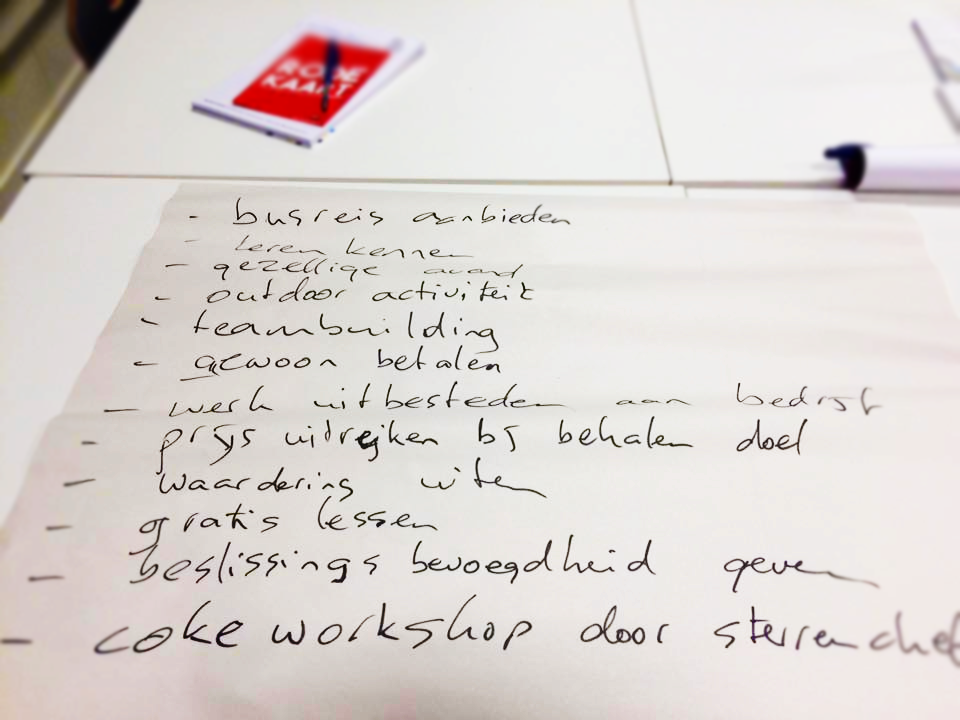 RODE
KAART
- busreis aanbieden
- leren kennen
- gezellige avond
- outdoor activiteit
- teambuilding
- gewoon betalen
- werk uitbesteden aan bedrijf
- prijs uitreijken bij behalen doel
- waardering uiten
- gratis lessen
- beslissings bevoegdheid geven
- coke workshop door sterrenchef